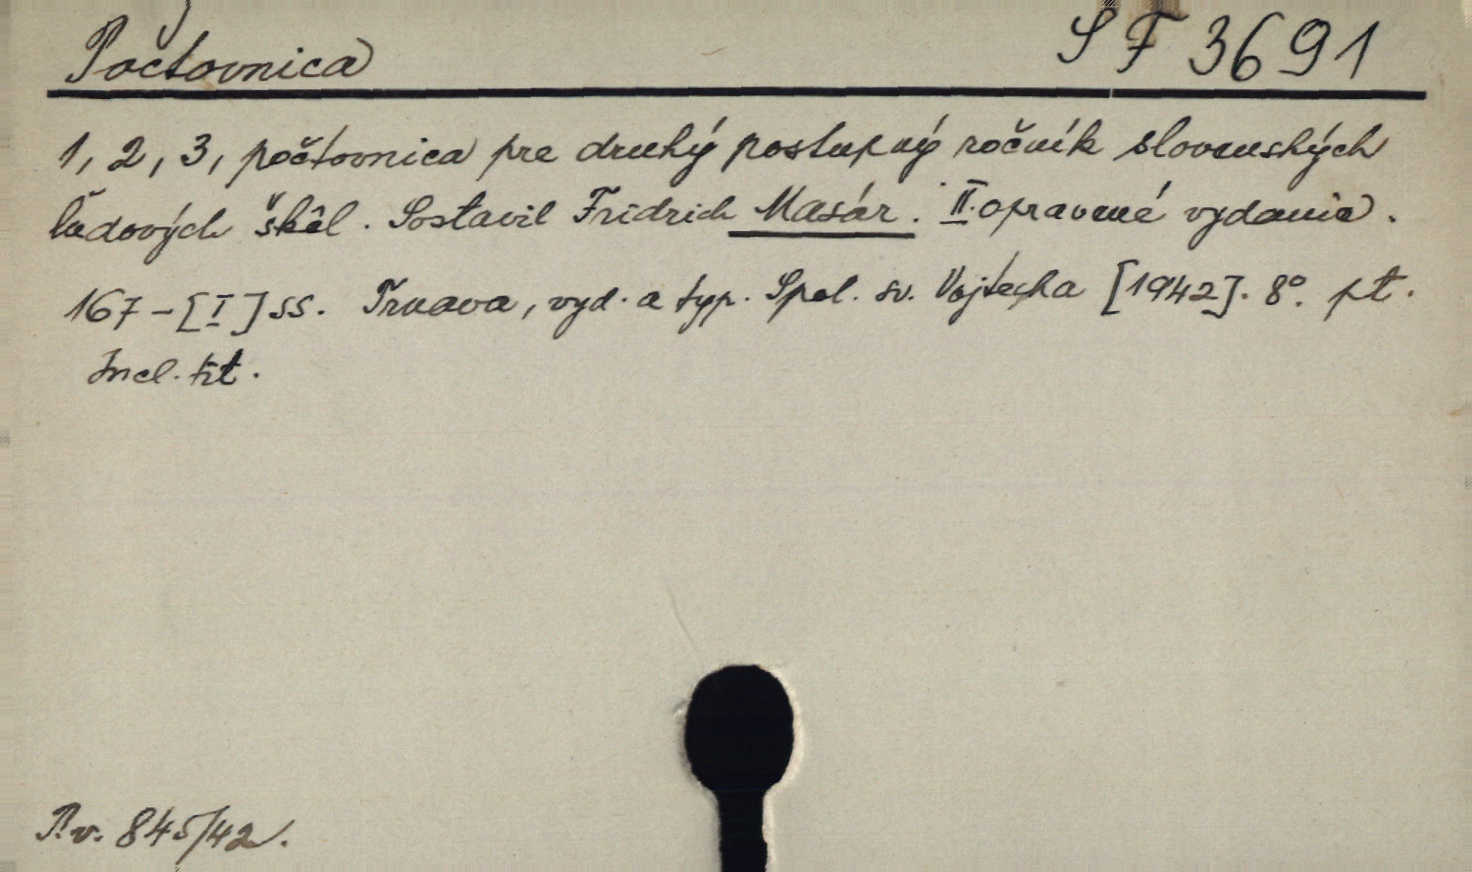 Počtovnica SF 3691
1, 2, 3, počtovnica pre druhý postupný ročník slovenských
ľudových škôl. Sostavil Fridrich Masár. II. opravené vydanie.
167-[I] ss. Trnava, vyd. a typ. Spol. sv. Vojtecha [1942]. 8°. pt.
Incl. tit.
P.v. 845/42.